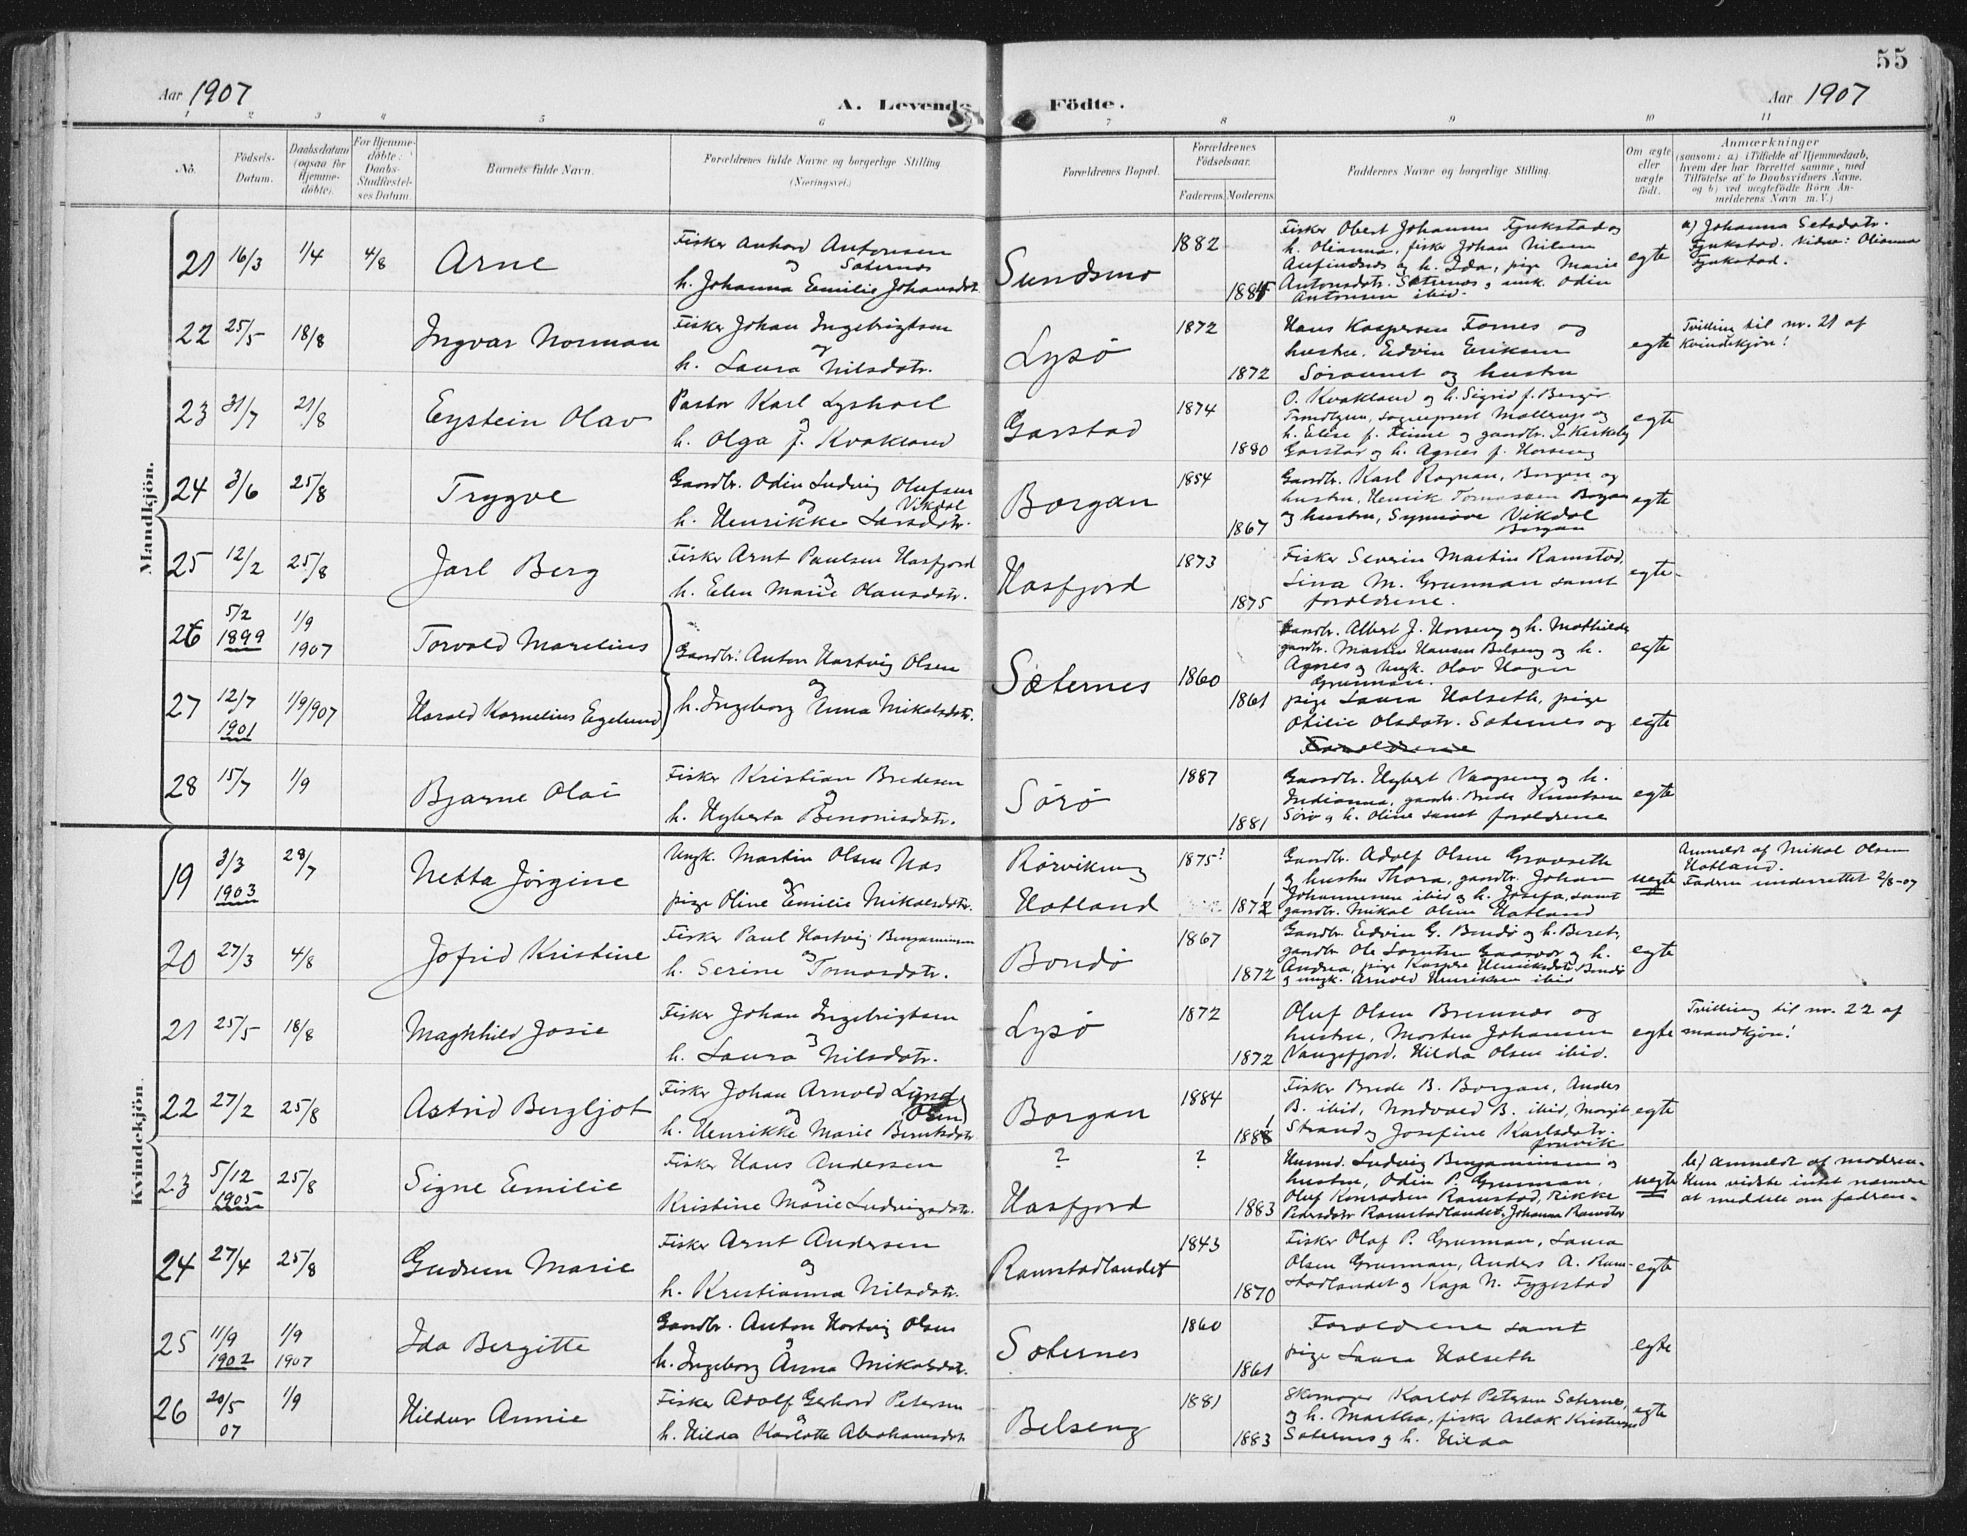 55
Aar 1907
A. Levende Födte.
Aar 1907
1 2 3 4 5 6 7 8 9 10 11
No.
Födsels-
Datum.
Daabsdatum
(ogsaa for
Hjemme-
döbte).
For Hjemme-
döbte:
Daabs-
Stadfæstel-
ses Datum
Barnets fulde Navn.
Forældrenes fulde Navne og borgerlige Stilling
(Næringsvei.)
Forældrenes Bopæl.
Forældrenes
Födselsaar.
Faderens. Moderens.
Faddernes Navne og borgerlige Stilling.
Om ægte
eller
uægte
födt.
Anmærkninger
(saasom: a) i Tilfælde af Hjemmedaab,
hvem der har forrettet samme, med
Tilföielse af to Daabsvidners Navne,
og b) ved uægtefödte Börn An-
melderens Navn m. V.)
Mandkjön.
21 16/3 1/4 4/8 Arne
Fisker Antonsen
Sæternes
h. Johanna Emilie Johansdtr.
Sundsmo
1882
Fisker Obert Johansen Fjukstad og
h. Olianna, fisker Johan Nilsen
og h. Ida, pige Marie
Antonsdatr. Sæternes, ungk. Odin
Antonsen ibid.
egte
a) Johanna
Fjukstad. Vidne: Olianna
Fjukstad.
22 25/5 18/8 Ingvar Norman
Fisker Johan Ingebrigtsen
og
h. Laura Nilsdatr.
Lysö
1872
1872
Hans Kaspersen Fornes og
hustru. Edvin Eriksen
Söraunet og hustru
egte
Tvilling til nr. 21 af
Kvindekjøn!
23 31/7 21/8 Eystein Olav
Pastor Karl Lyshoel
og
h. Olga f. Kvakland
Garstad
1874
1880
O. Kvakland og h. Sigrid f. Berger
Trondhjem, sogneprest Møllerup og
h. Elise f. Finne og gaardbr. J. Kirkeby
Garstad og h. Agnes f. Horseng
egte
24 3/6 25/8 Trygve
Gaardbr. Odin Ludvig Olufsen
og Vikdal
h. Henrikke Larsdatr.
Borgan
1854
1867
Gaardbr. Karl Ragnan, Borgan og
hustru, Henrik Tomassen Borgan
og hustru, Synnöve Vikdal
Borgan
egte
25 12/2 25/8 Jarl Berg
Fisker Arnt Paulsen Hasfjord
og
h. Elen Marie Olausdatr.
Hasfjord
1873
1875
Fisker Severin Martin Ramstad.
Lina M. Grunnan samt
forældrene.
egte
26 5/2
1899
1/9
1907
Torvald Marelius
Gaardbr. Anton Hartvig Olsen
og
h. Ingeborg Anna Mikalsdtr.
Sæternes
1860
1861
Gaardbr. Albert J. Horseng og h. Mathilde
gaardbr. Martin Hansen Belseng og h.
Agnes og ungk. Olav Hagen
Grunnan.
egte
27 12/7
1901
1/9/907
Harald Kornelius Egelund
pige Laura Halseth, pige
Otilie Olsdatr. Sæternes og
Forældrene
egte
28 15/7 1/9 Bjarne Olai
Fisker Kristian Bredesen
og
h. Hyberta Benonisdatr.
Sörö
1887
1881
Gaardbr. Hybert Vaagseng og h.
Indianna, gaardbr. Brede Knutsen
Sörö og h. Oline samt forældrene
egte
Kvindekjön.
19 3/3
1903
28/7
Netta Jörgine
Ungk. Martin Olsen Nas
og
pige Oline Emilie Mikalsdatr.
Rörvikeng
Hatland
1875?
1872
Gaardbr. Adolf Olsen Gravseth
og hustru Thora, gaardbr. Johan
Johannesen ibid og h. Josefa, samt
gaardbr. Mikal Olsen Hatland
uegte
Anmeldt af Mikal Olsen
Hatland.
Faderen underrettet 2/8-07
20 27/3 4/8 Jofrid Kristine
Fisker Paul Hartvig Benjaminsen
og
h. Serine Tomasdatr.
Bondö
1867
1872
Gaardbr. Edvin G. Bondö og h. Beret,
gaardbr. Ole Lorntsen og h.
Andrea, pige Kaspara Henriksdatr. Bondö
og ungk. Arnold Henriksen ibid
egte
21 25/5 18/8 Maghhild Josie
Fisker Johan Ingebrigtsen
og
h. Laura Nilsdatr.
Lysö
1872
1872
Oluf Olsen Bremnes og
hustru, Morten Johansen
Vangsfjord, Hilda Olsen ibid.
egte
Tvilling til nr. 22 af
mandkjøn!
22 27/2 25/8 Astrid Bergljot
Fisker Johan Arnold Lund
og Olsen
h. Henrikke Marie Berntsdatr.
Borgan
1884
188
Fisker Brede B. Borgan, Anders
B. ibid, Nordvald B. ibid, Margit
Strand og Josefine Karlsdatr.
egte
23 5/12
1905
25/8
Signe Emilie
Fisker Hans Andersen
og
Kristine Marie Ludvigsdatr.
?
Hasfjord
?
1883
Husmd. Ludvig Benjaminsen og
hustru, Odin P. Grunnan,
Oluf Konradsen Ramstad, Rikke
Pedersdatr Ramstadlandet, Johanna Ramstad
uegte
b) anmeldt af moderen.
Hun vidste intet nærmere
at meddele om fadren.
24 27/4 25/8 Gudrun Marie
Fisker Arnt Andersen
og
h. Kristianna Nilsdatr.
Ramstadlandet
1843
1870
Fisker Olaf P. Grunnan, Laura
Olsen Grunnan, Anders A. Ram-
stadlandet og Kaja N. Fygestad
egte
25 11/9
1902
1/9
1907
Ida Bergitte
Gaardbr. Anton Hartvig Olsen
og
h. Ingeborg Anna Mikalsdatr.
Sæternes
1860
1861
Forældrene samt
pige Laura Halseth
egte
26 20/5
07
1/9
Hildur Annie
Fisker Adolf Gerhard Petersen
og
h. Hilda Karlotte Abrahamsdatr.
Belseng
1881
1883
Skomager Karlot Petersen Sæternes,
og h. Martha, fisker Aslak Kristensen
Sæternes og h. Hilda
egte